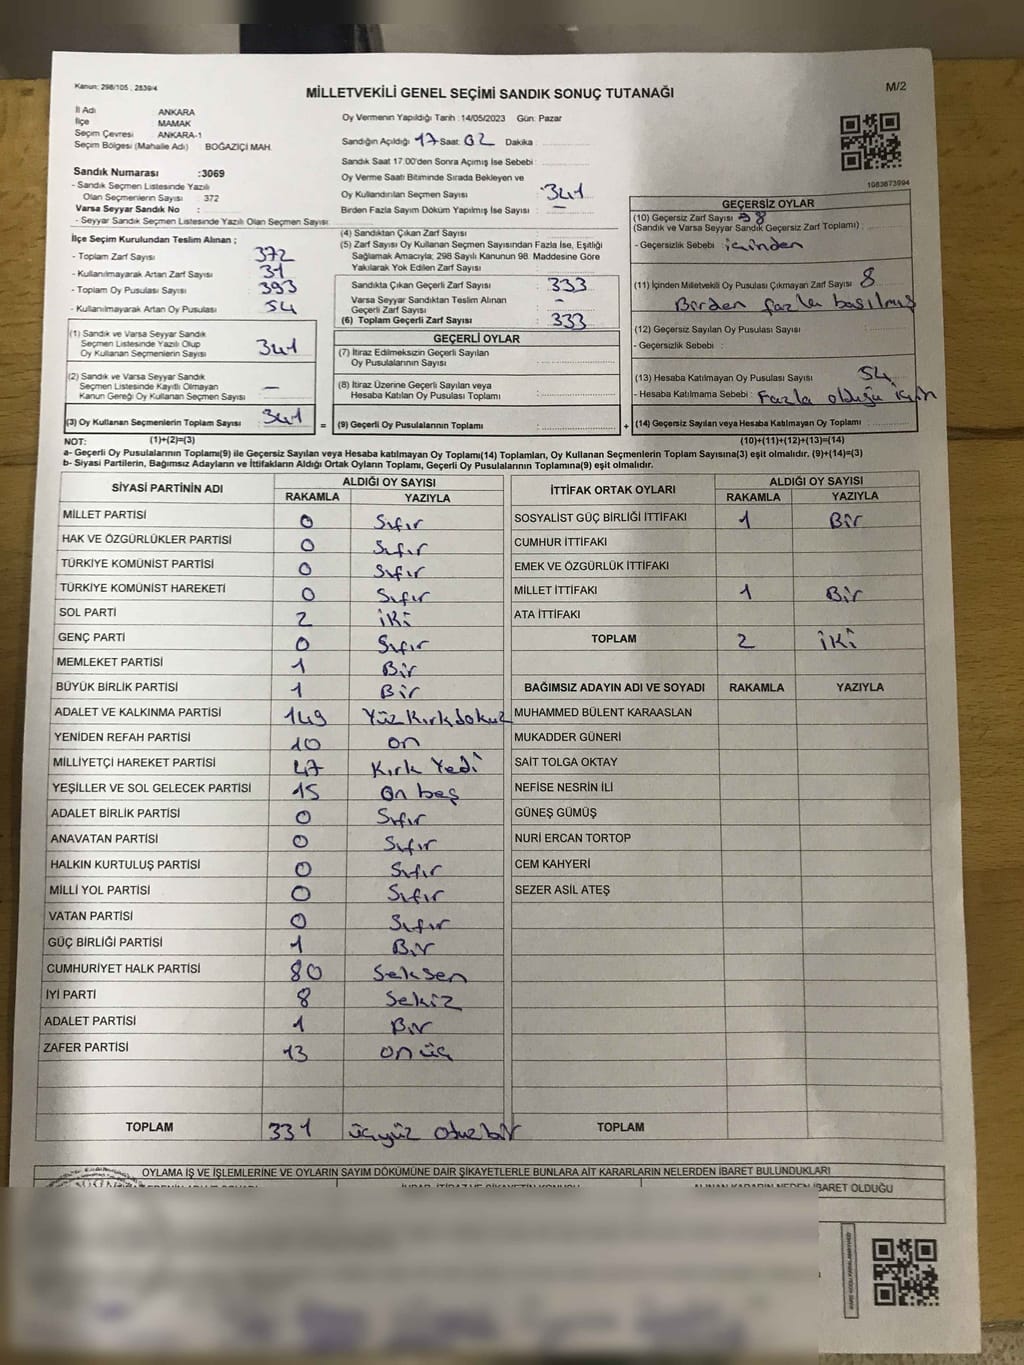 Kanun: 298/105 , 2839/4
MİLLETVEKİLİ GENEL SEÇİMİ SANDIK SONUÇ TUTANAĞI
M/2
İl Adı ANKARA
İlçe MAMAK
Seçim Çevresi ANKARA-1
Seçim Bölgesi (Mahalle Adı) BOĞAZİÇİ MAH.
Sandık Numarası :3069
- Sandık Seçmen Listesinde Yazılı
Olan Seçmenlerin Sayısı 372
Varsa Seyyar Sandık No :
- Seyyar Sandık Seçmen Listesinde Yazılı Olan Seçmen Sayısı:
Oy Vermenin Yapıldığı Tarih :14/05/2023 Gün: Pazar
Sandığın Açıldığı 17 Saat 02 Dakika
Sandık Saat 17.00'den Sonra Açımış İse Sebebi :
Oy Verme Saati Bitiminde Sırada Bekleyen ve
Oy Kullandırılan Seçmen Sayısı : 341
Birden Fazla Sayım Döküm Yapılmış İse Sayısı : —
1083673994
İlçe Seçim Kurulundan Teslim Alınan ;
- Toplam Zarf Sayısı 372
- Kullanılmayarak Artan Zarf Sayısı 31
- Toplam Oy Pusulası Sayısı 393
- Kullanılmayarak Artan Oy Pusulası : 54
(1) Sandık ve Varsa Seyyar Sandık
Seçmen Listesinde Yazılı Olup
Oy Kullanan Seçmenlerin Sayısı 341
(2) Sandık ve Varsa Seyyar Sandık
Seçmen Listesinde Kayıtlı Olmayan
Kanun Gereği Oy Kullanan Seçmen Sayısı : —
(3) Oy Kullanan Seçmenlerin Toplam Sayısı : 341 =
(4) Sandıktan Çıkan Zarf Sayısı :
(5) Zarf Sayısı Oy Kullanan Seçmen Sayısından Fazla İse, Eşitliği
Sağlamak Amacıyla; 298 Sayılı Kanunun 98. Maddesine Göre
Yakılarak Yok Edilen Zarf Sayısı :
Sandıkta Çıkan Geçerli Zarf Sayısı : 333
Varsa Seyyar Sandıktan Teslim Alınan
Geçerli Zarf Sayısı : —
(6) Toplam Geçerli Zarf Sayısı : 333
GEÇERLİ OYLAR
(7) İtiraz Edilmeksizin Geçerli Sayılan
Oy Pusulalarının Sayısı :
(8) İtiraz Üzerine Geçerli Sayılan veya
Hesaba Katılan Oy Pusulası Toplamı :
(9) Geçerli Oy Pusulalarının Toplamı : +
GEÇERSİZ OYLAR
(10) Geçersiz Zarf Sayısı 8
(Sandık ve Varsa Seyyar Sandık Geçersiz Zarf Toplamı) :
- Geçersizlik Sebebi : içinden
(11) İçinden Milletvekili Oy Pusulası Çıkmayan Zarf Sayısı 8
Birden fazla basılmış
(12) Geçersiz Sayılan Oy Pusulası Sayısı
- Geçersizlik Sebebi :
(13) Hesaba Katılmayan Oy Pusulası Sayısı 54
- Hesaba Katılmama Sebebi : Fazla olduğu için
(14) Geçersiz Sayılan veya Hesaba Katılmayan Oy Toplamı :
NOT: (1)+(2)=(3) (10)+(11)+(12)+(13)=(14)
a- Geçerli Oy Pusulasının Toplamı(9) ile Geçersiz Sayılan veya Hesaba Katılmayan Oy Toplamı(14) Toplamları, Oy Kullanan Seçmenlerin Toplam Sayısına(3) eşit olmalıdır. (9)+(14)=(3)
b- Siyasi Partilerin, Bağımsız Adayların ve İttifakların Aldığı Ortak Oyların Toplamı, Geçerli Oy Pusulalarının Toplamına(9) eşit olmalıdır.
SİYASİ PARTİNİN ADI ALDIĞI OY SAYISI
RAKAMLA YAZIYLA
MİLLET PARTİSİ 0 Sıfır
HAK VE ÖZGÜRLÜKLER PARTİSİ 0 Sıfır
TÜRKİYE KOMÜNİST PARTİSİ 0 Sıfır
TÜRKİYE KOMÜNİST HAREKETİ 0 Sıfır
SOL PARTİ 2 iki
GENÇ PARTİ 0 Sıfır
MEMLEKET PARTİSİ 1 Bir
BÜYÜK BİRLİK PARTİSİ 1 Bir
ADALET VE KALKINMA PARTİSİ 149 Yüz Kırk dokuz
YENİDEN REFAH PARTİSİ 10 on
MİLLİYETÇİ HAREKET PARTİSİ 47 Kırk Yedi
YEŞİLLER VE SOL GELECEK PARTİSİ 15 On beş
ADALET BİRLİK PARTİSİ 0 Sıfır
ANAVATAN PARTİSİ 0 Sıfır
HALKIN KURTULUŞ PARTİSİ 0 Sıfır
MİLLİ YOL PARTİSİ 0 Sıfır
VATAN PARTİSİ 0 Sıfır
GÜÇ BİRLİĞİ PARTİSİ 1 Bir
CUMHURİYET HALK PARTİSİ 80 Seksen
İYİ PARTİ 8 Sekiz
ADALET PARTİSİ 1 Bir
ZAFER PARTİSİ 13 on üç
TOPLAM 331 üçyüz otuz bir
İTTİFAK ORTAK OYLARI ALDIĞI OY SAYISI
RAKAMLA YAZIYLA
SOSYALİST GÜÇ BİRLİĞİ İTTİFAKI 1 Bir
CUMHUR İTTİFAKI
EMEK VE ÖZGÜRLÜK İTTİFAKI
MİLLET İTTİFAKI 1 Bir
ATA İTTİFAKI
TOPLAM 2 iki
BAĞIMSIZ ADAYIN ADI VE SOYADI RAKAMLA YAZIYLA
MUHAMMED BÜLENT KARAASLAN
MUKADDER GÜNERİ
SAİT TOLGA OKTAY
NEFİSE NESRİN İLİ
GÜNEŞ GÜMÜŞ
NURİ ERCAN TORTOP
CEM KAHYERİ
SEZER ASIL ATEŞ
TOPLAM
OYLAMA İŞ VE İŞLEMLERİNE VE OYLARIN SAYIM DÖKÜMÜNE DAİR ŞİKAYETLERLE BUNLARA AİT KARARLARIN NELERDEN İBARET BULUNDUKLARI
ALINAN KARARIN NEDEN İBARET OLDUĞU